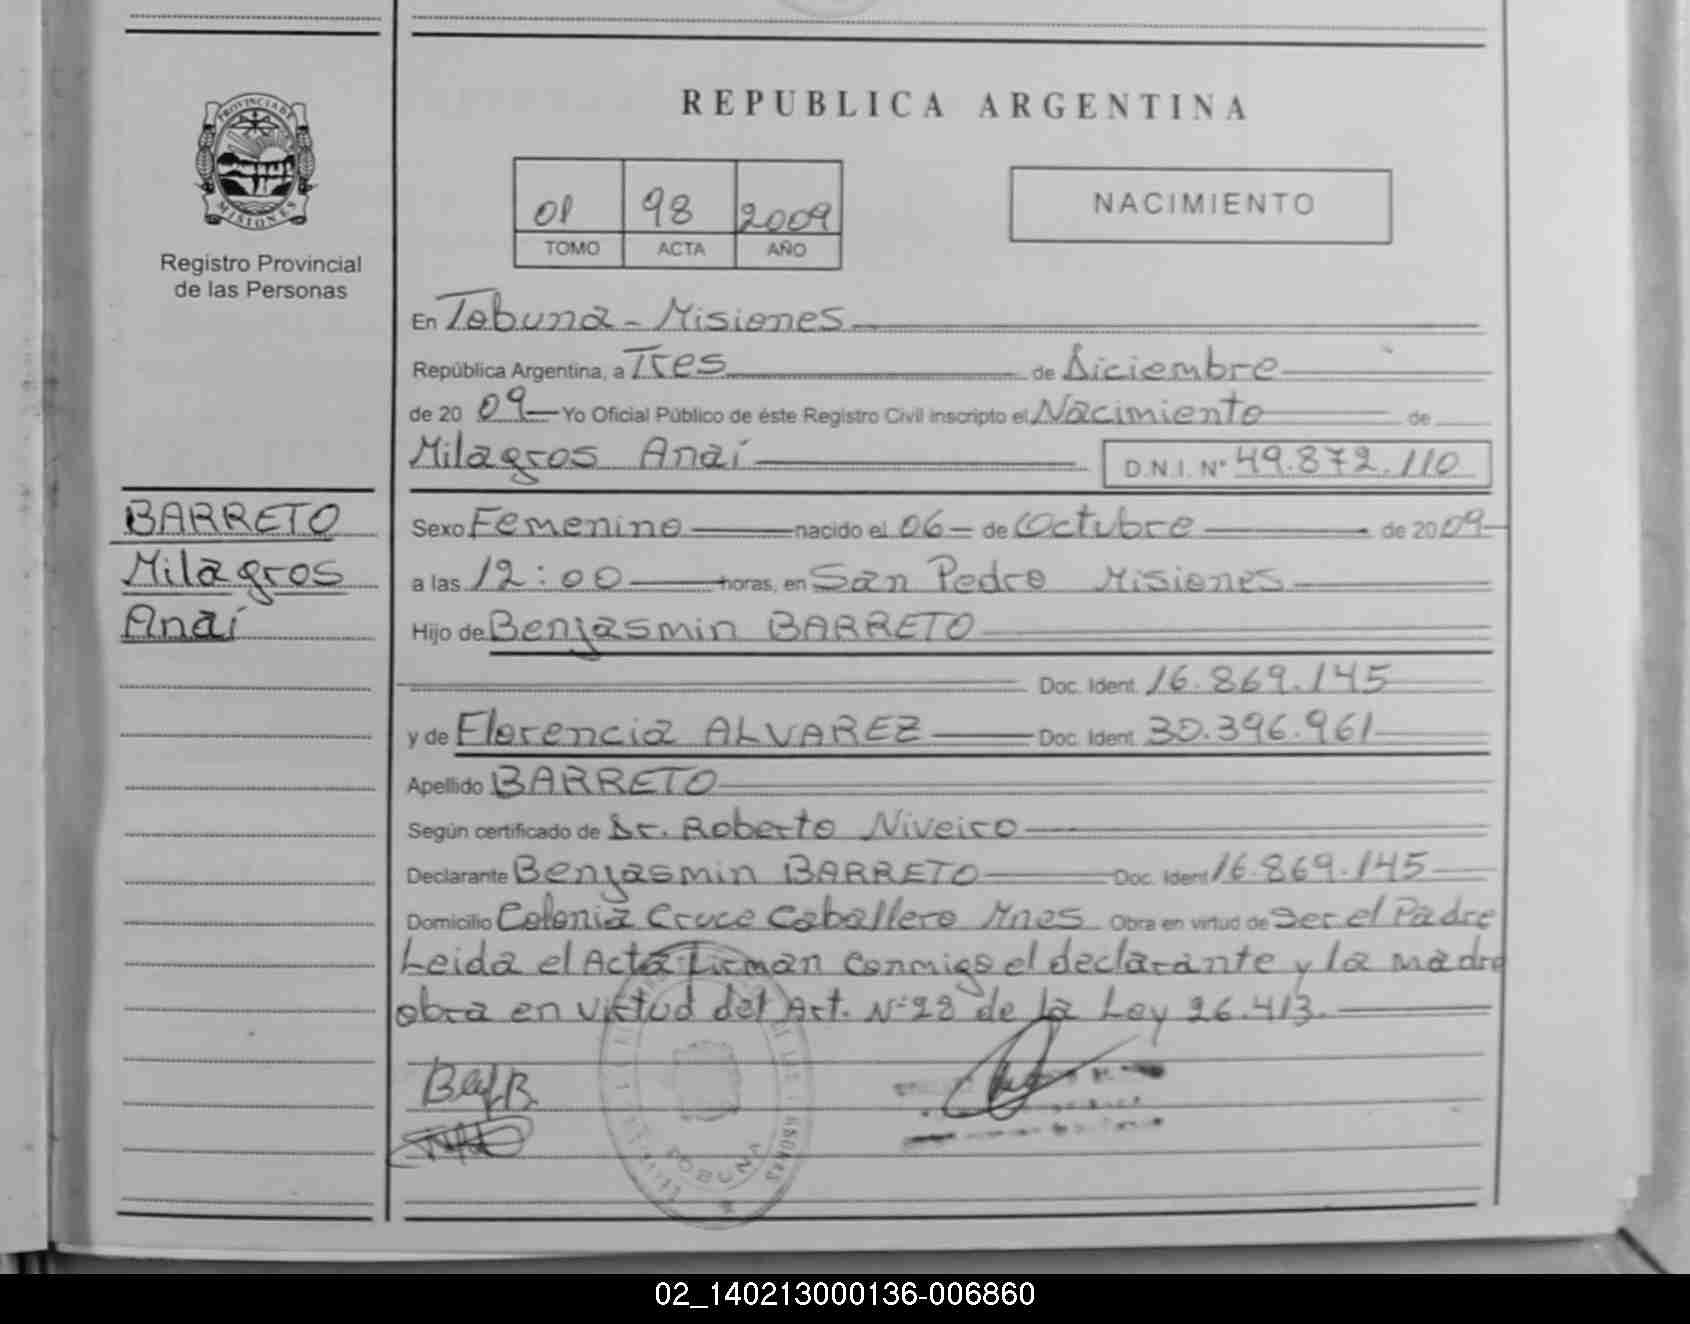 REPUBLICA ARGENTINA
PROVINCIA DE
MISIONES
Registro Provincial
de las Personas
01 98 2009
TOMO ACTA AÑO
NACIMIENTO
En Tobuna - Misiones
República Argentina, a Tres de Diciembre
de 20 09 Yo Oficial Público de éste Registro Civil inscripto el Nacimiento de
Milagros Anaí D.N.I. Nº 49.872.110
BARRETO
Milagros
Anaí
Sexo Femenino nacido el 06 de Octubre de 2009
a las 12:00 horas, en San Pedro Misiones
Hijo de Benjasmin BARRETO
Doc. Ident. 16.869.145
y de Florencia ALVAREZ Doc. Ident. 30.396.961
Apellido BARRETO
Según certificado de Dr. Roberto Niveiro
Declarante Benjasmin BARRETO Doc. Ident. 16.869.145
Domicilio Colonia Cruce Caballero Mnes. Obra en virtud de Ser el Padre
Leida el Acta Firman conmigo el declarante y la madre
obra en virtud del Art. Nº 28 de la Ley 26.413.
TOBUNA
02_140213000136-006860